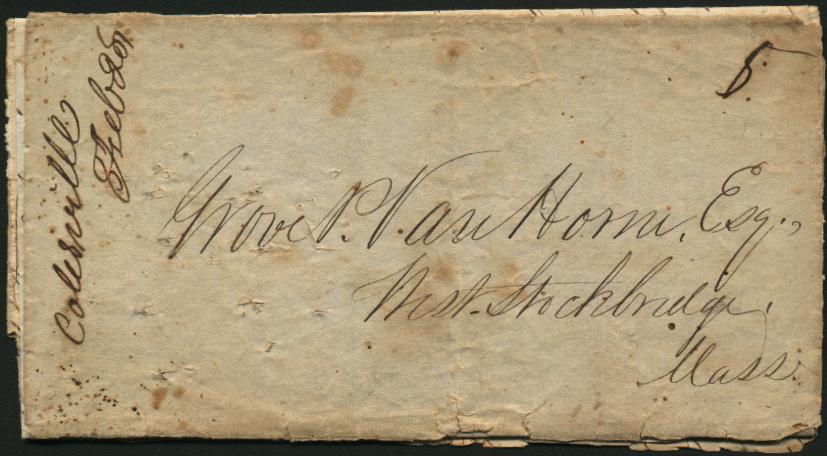 Colesville
Feb 25
5.
Grove P. Van Horn, Esq.,
West. Stockbridge,
Mass.